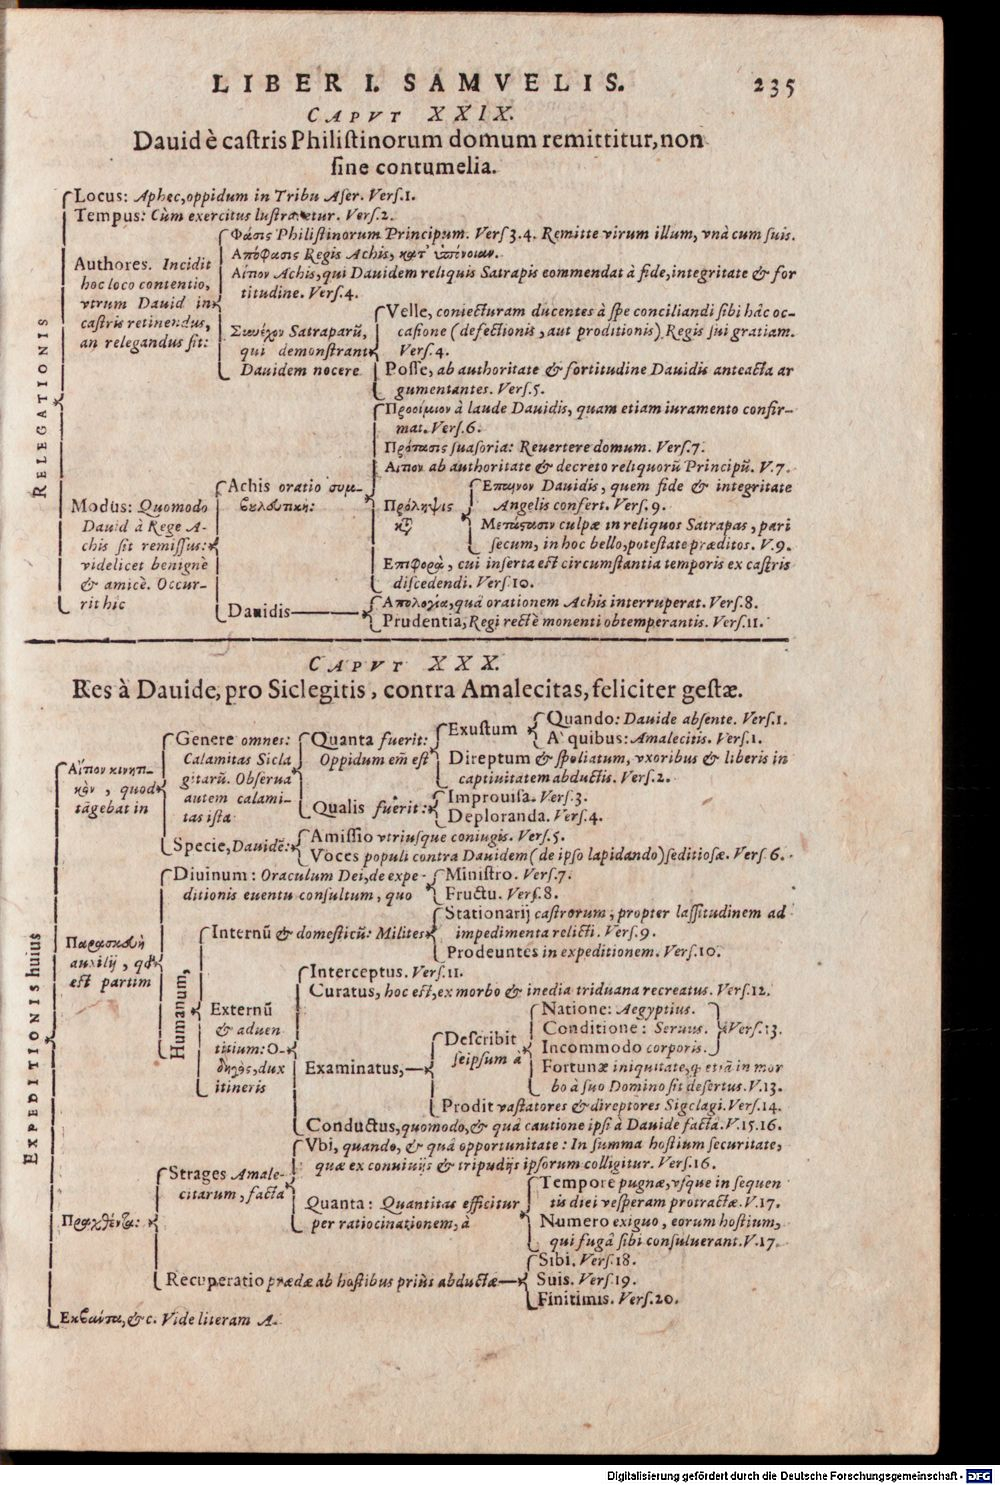 LIBER I. SAMVELIS. 235
CAPVT XXIX.
Dauid è castris Philistinorum domum remittitur, non
sine contumelia.
RELEGATIONIS
Locus: Aphec, oppidum in Tribu Aser. Vers.1.
Tempus: Cùm exercitus lustraretur. Vers.2.
Authores. Incidit
hoc loco contentio,
vtrum Dauid in
castris retinendus,
an relegandus sit:
Φάσις Philistinorum Principum. Vers 3.4. Remitte virum illum, vnà cum suis.
Απόφασις Regis Achis, κατ' ὑπόνοιαν.
Αἴτιον Achis, qui Dauidem reliquis Satrapis commendat à fide, integritate & for
titudine. Vers.4.
Συνέχον Satraparũ,
qui demonstrant
Dauidem nocere
Velle, coniecturam ducentes à spe conciliandi sibi hâc oc-
casione (defectionis, aut proditionis) Regis sui gratiam.
Vers.4.
Posse, ab authoritate & fortitudine Dauidis anteacta ar
gumentantes. Vers.5.
Modus: Quomodo
Dauid à Rege A-
chis sit remissus:
videlicet benignè
& amicè. Occur-
rit hic
Achis oratio συμ-
βουλευτική:
Προοίμιον à laude Dauidis, quam etiam iuramento confir-
mat. Vers.6.
Πρότασις suasoria: Reuertere domum. Vers.7.
Αιτιον ab authoritate & decreto reliquorũ Principũ. V.7.
Πρόληψις
κατ'
Επαινον Dauidis, quem fide & integritate
Angelis confert. Vers.9.
Μετάστασιν culpæ in reliquos Satrapas, pari
secum, in hoc bello, potestate præditos. V.9.
Επιφορὰ, cui inserta est circumstantia temporis ex castris
discedendi. Vers.10.
Dauidis
Απολογία, quâ orationem Achis interruperat. Vers.8.
Prudentia, Regi rectè monenti obtemperantis. Vers.11.
CAPVT XXX.
Res à Dauide, pro Siclegitis, contra Amalecitas, feliciter gestæ.
EXPEDITIONIS huius
Αἴτιον κινητι-
κὸν, quod
tãgebat in
Genere omnes:
Calamitas Sicla
gitarũ. Obserua
autem calami-
tas ista
Quanta fuerit:
Oppidum em̃ est
Exustum
Quando: Dauide absente. Vers.1.
A quibus: Amalecitis. Vers.1.
Direptum & spoliatum, vxoribus & liberis in
captiuitatem abductis. Vers.2.
Qualis fuerit:
Improuisa. Vers.3.
Deploranda. Vers.4.
Specie, Dauidẽ:
Amissio vtriusque coniugis. Vers.5.
Voces populi contra Dauidem (de ipso lapidando) seditiosæ. Vers 6.
Παρασκευὴ
auxilij, qđ
est partim
Diuinum: Oraculum Dei, de expe-
ditionis euentu consultum, quo
Ministro. Vers.7.
Fructu. Vers.8.
Humanum,
Internũ & domesticũ: Milites
Stationarij castrorum, propter lassitudinem ad
impedimenta relicti. Vers.9.
Prodeuntes in expeditionem. Vers.10.
Externũ
& aduen
titium: Ο-
δηγὸς, dux
itineris
Interceptus. Vers.11.
Curatus, hoc est, ex morbo & inedia triduana recreatus. Vers.12.
Examinatus,
Describit
seipsum à
Natione: Aegyptius.
Conditione: Seruus. Vers.13.
Incommodo corporis.
Fortunæ iniquitate, q̃ etiã in mor
bo à suo Domino sit desertus. V.13.
Prodit vastatores & direptores Sigclagi. Vers.14.
Conductus, quomodo, & quâ cautione ipsi à Dauide facta. V.15.16.
Πραχθέντα:
Strages Amale-
citarum, facta
Vbi, quando, & quâ opportunitate: In summa hostium securitate,
quæ ex conuiuijs & tripudijs ipsorum colligitur. Vers.16.
Quanta: Quantitas efficitur
per ratiocinationem, à
Tempore pugnæ, vsque in sequen
tis diei vesperam protractæ. V.17.
Numero exiguo, eorum hostium,
qui fugâ sibi consuluerant. V.17.
Recuperatio prædæ ab hostibus priùs abductæ
Sibi. Vers.18.
Suis. Vers.19.
Finitimis. Vers.20.
Εκβαίντα, &c. Vide literam A.
Digitalisierung gefördert durch die Deutsche Forschungsgemeinschaft - DFG